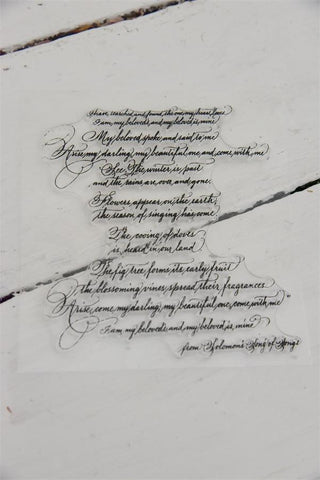 I have searched and found the one my heart loves
I am my beloveds and my beloved is mine
My beloved spoke and said to me
Arise my darling, my beautiful one, and come with me
See, The winter is past
and the rains are over and gone
Flowers appear on the earth
the season of singing has come
The cooing of doves
is heard in our land
The fig tree forms its early fruit
the blossoming vines spread their fragrances
Arise, come my darling, my beautiful one, come with me"
I am my beloveds and my beloved is mine
from Solomon's Song of Songs